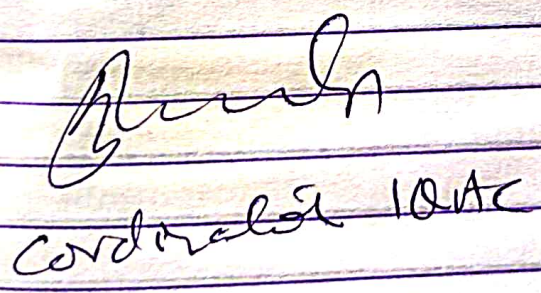 Cordinator IQAC